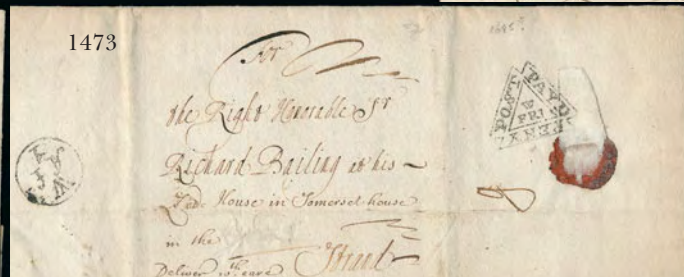 1473
1685?
For
the Right Honorable Sr
Richard Bailing at his
House in Somerset house
in the
Strand
Deliver wth care
PENY POST PAYD
W
FRI